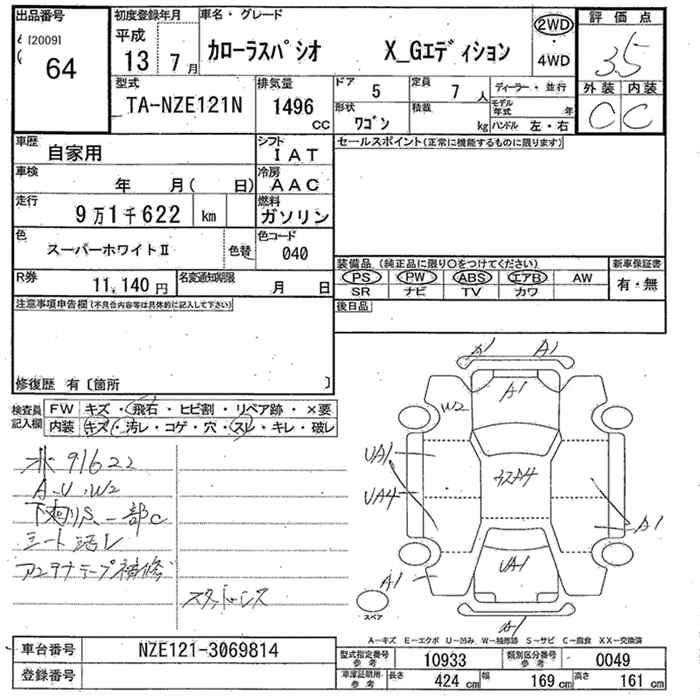 出品番号
[2009]
64
初度登録年月
平成
13 7月
車名・グレード
カローラスパシオ X_Gエディション
2WD
・
4WD
評価点
3.5
外装 内装
C C
型式
TA-NZE121N
排気量
1496
cc
ドア 5
定員 7 人
形状
ワゴン
積載
kg
ディーラー・並行
モデル年式 年
ハンドル 左・右
車歴
自家用
シフト
IAT
車検
年 月( 日)
冷房
AAC
走行
9万1千622 km
燃料
ガソリン
色
スーパーホワイトⅡ
色替
色コード
040
R券
11,140円
名変通知期限
月 日
セールスポイント(正常に機能するものに限ります)
装備品(純正品に限り○をつけてください)
PS PW ABS エアB AW
SR ナビ TV カワ
新車保証書
有・無
後日品
注意事項申告欄(不具合内容等は具体的に記入して下さい)
修復歴 有〔箇所 〕
検査員
記入欄
FW キズ・飛石・ヒビ割・リペア跡・×要
内装 キズ・汚レ・コゲ・穴・スレ・キレ・破レ
水 91622
A.U.W2
下廻りS.一部C
シート汚レ
アンテナテープ補修
スタッドレス
A1 A1
A1
W2
UA1
UA4
A1
UA1
A1
A1
スペア
A-キズ E-エクボ U-凹み W-補修跡 S-サビ C-腐食 XX-交換済
車台番号
NZE121-3069814
登録番号
型式指定番号
参考
10933
類別区分番号
参考
0049
車庫証明用
参考
長さ 424 cm
幅 169 cm
高さ 161 cm